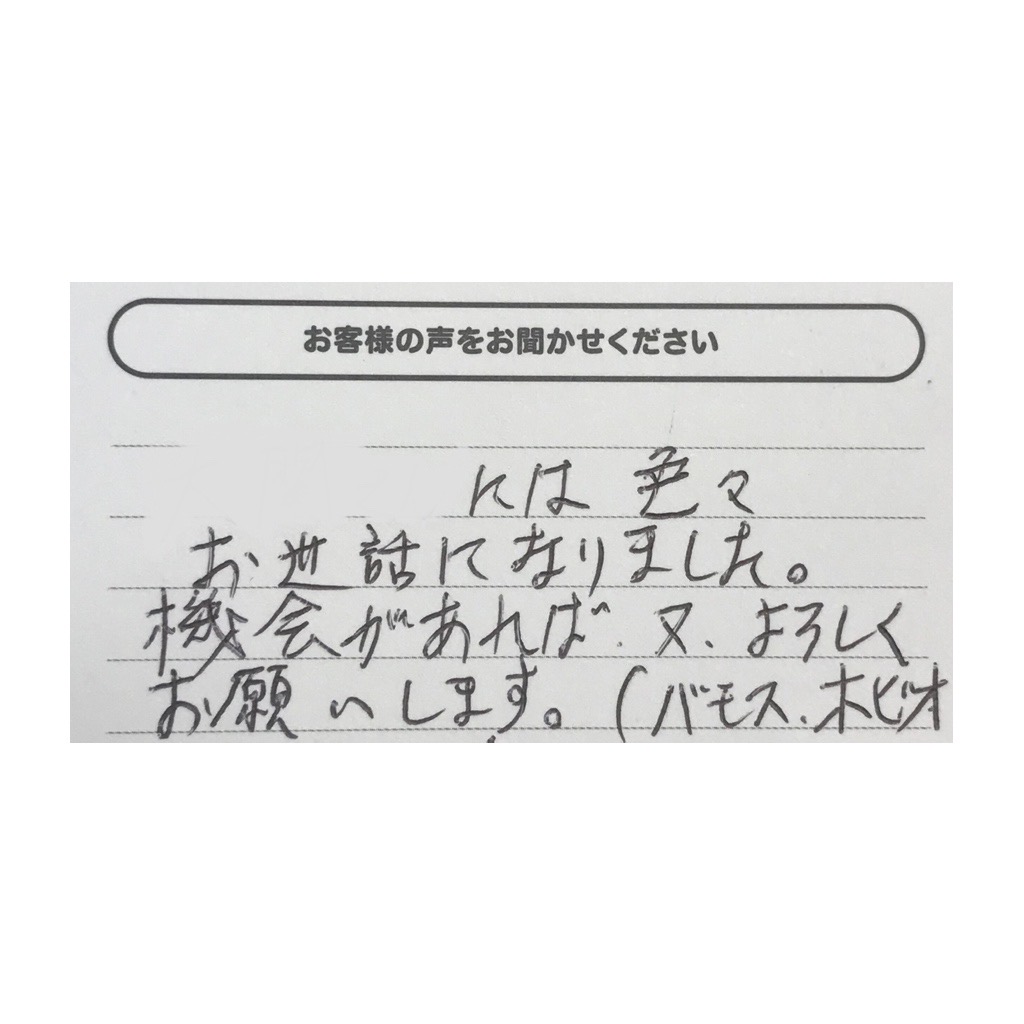 お客様の声をお聞かせください
には 色々
お世話になりました。
機会があれば、又、よろしく
お願いします。(バモス、ホビオ